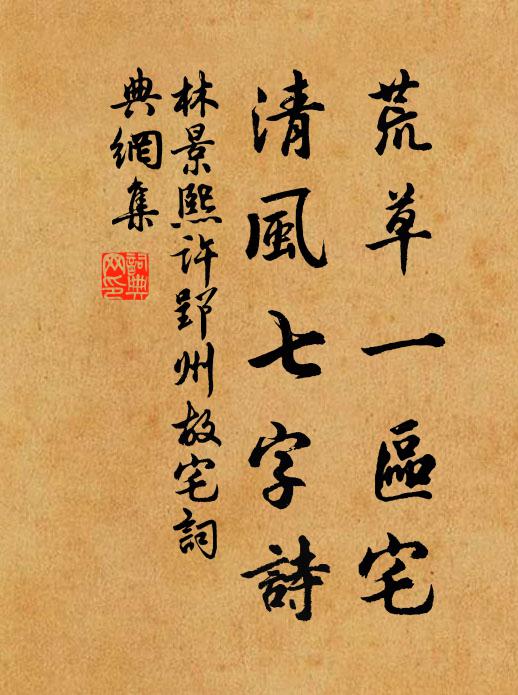 荒草一區宅
清風七字詩
林景熙許郢州故宅詞
典網集
詞典
网印